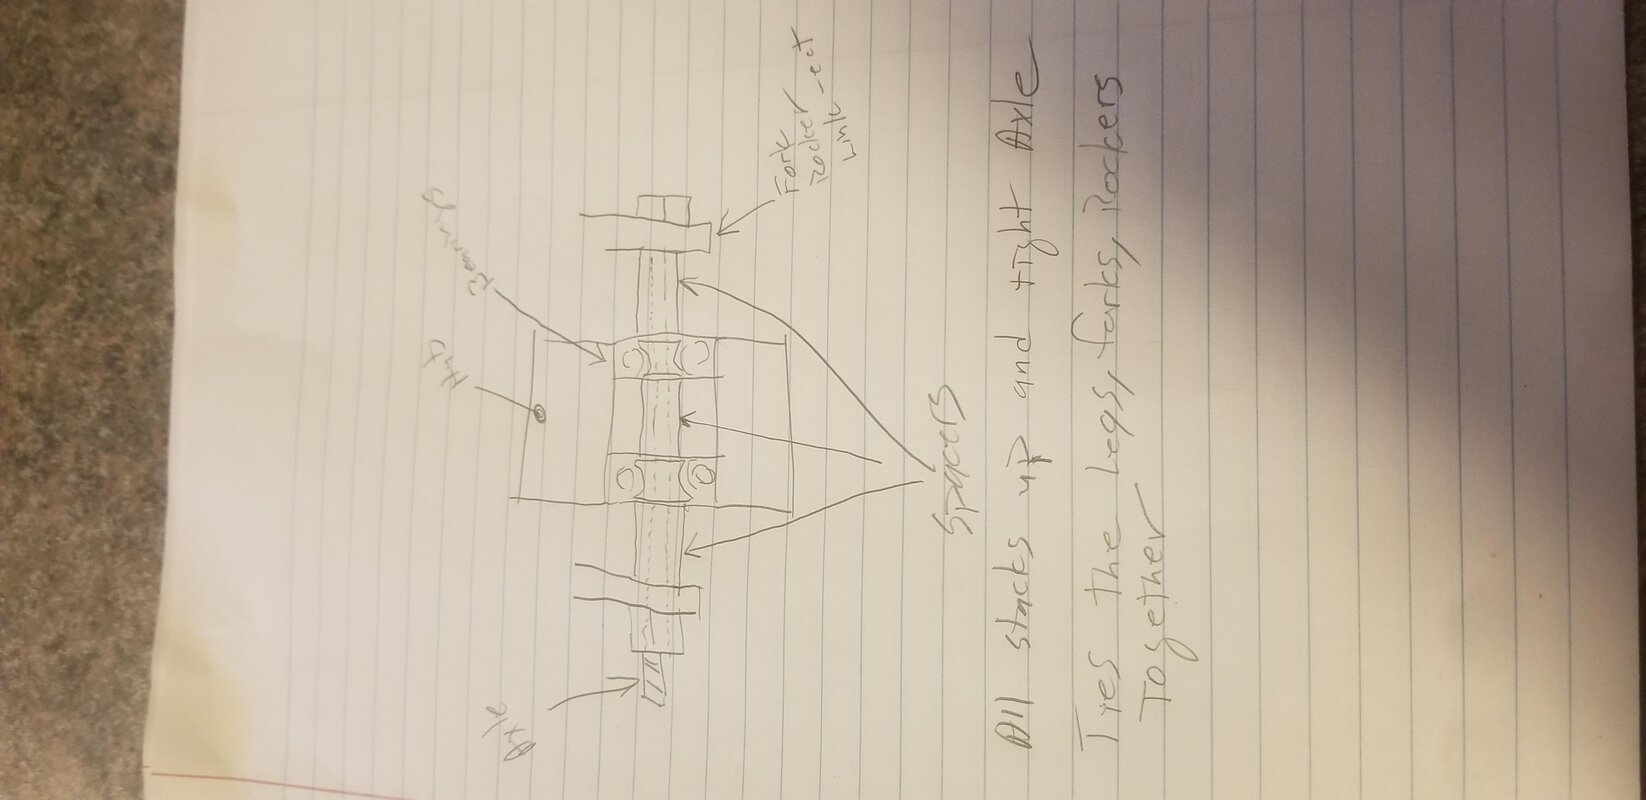 Axle
Hub
Bearings
Fork
rocker
Link -ect
Spacers
All stacks up and tight Axle
Ties the Legs, forks, Rockers
Together